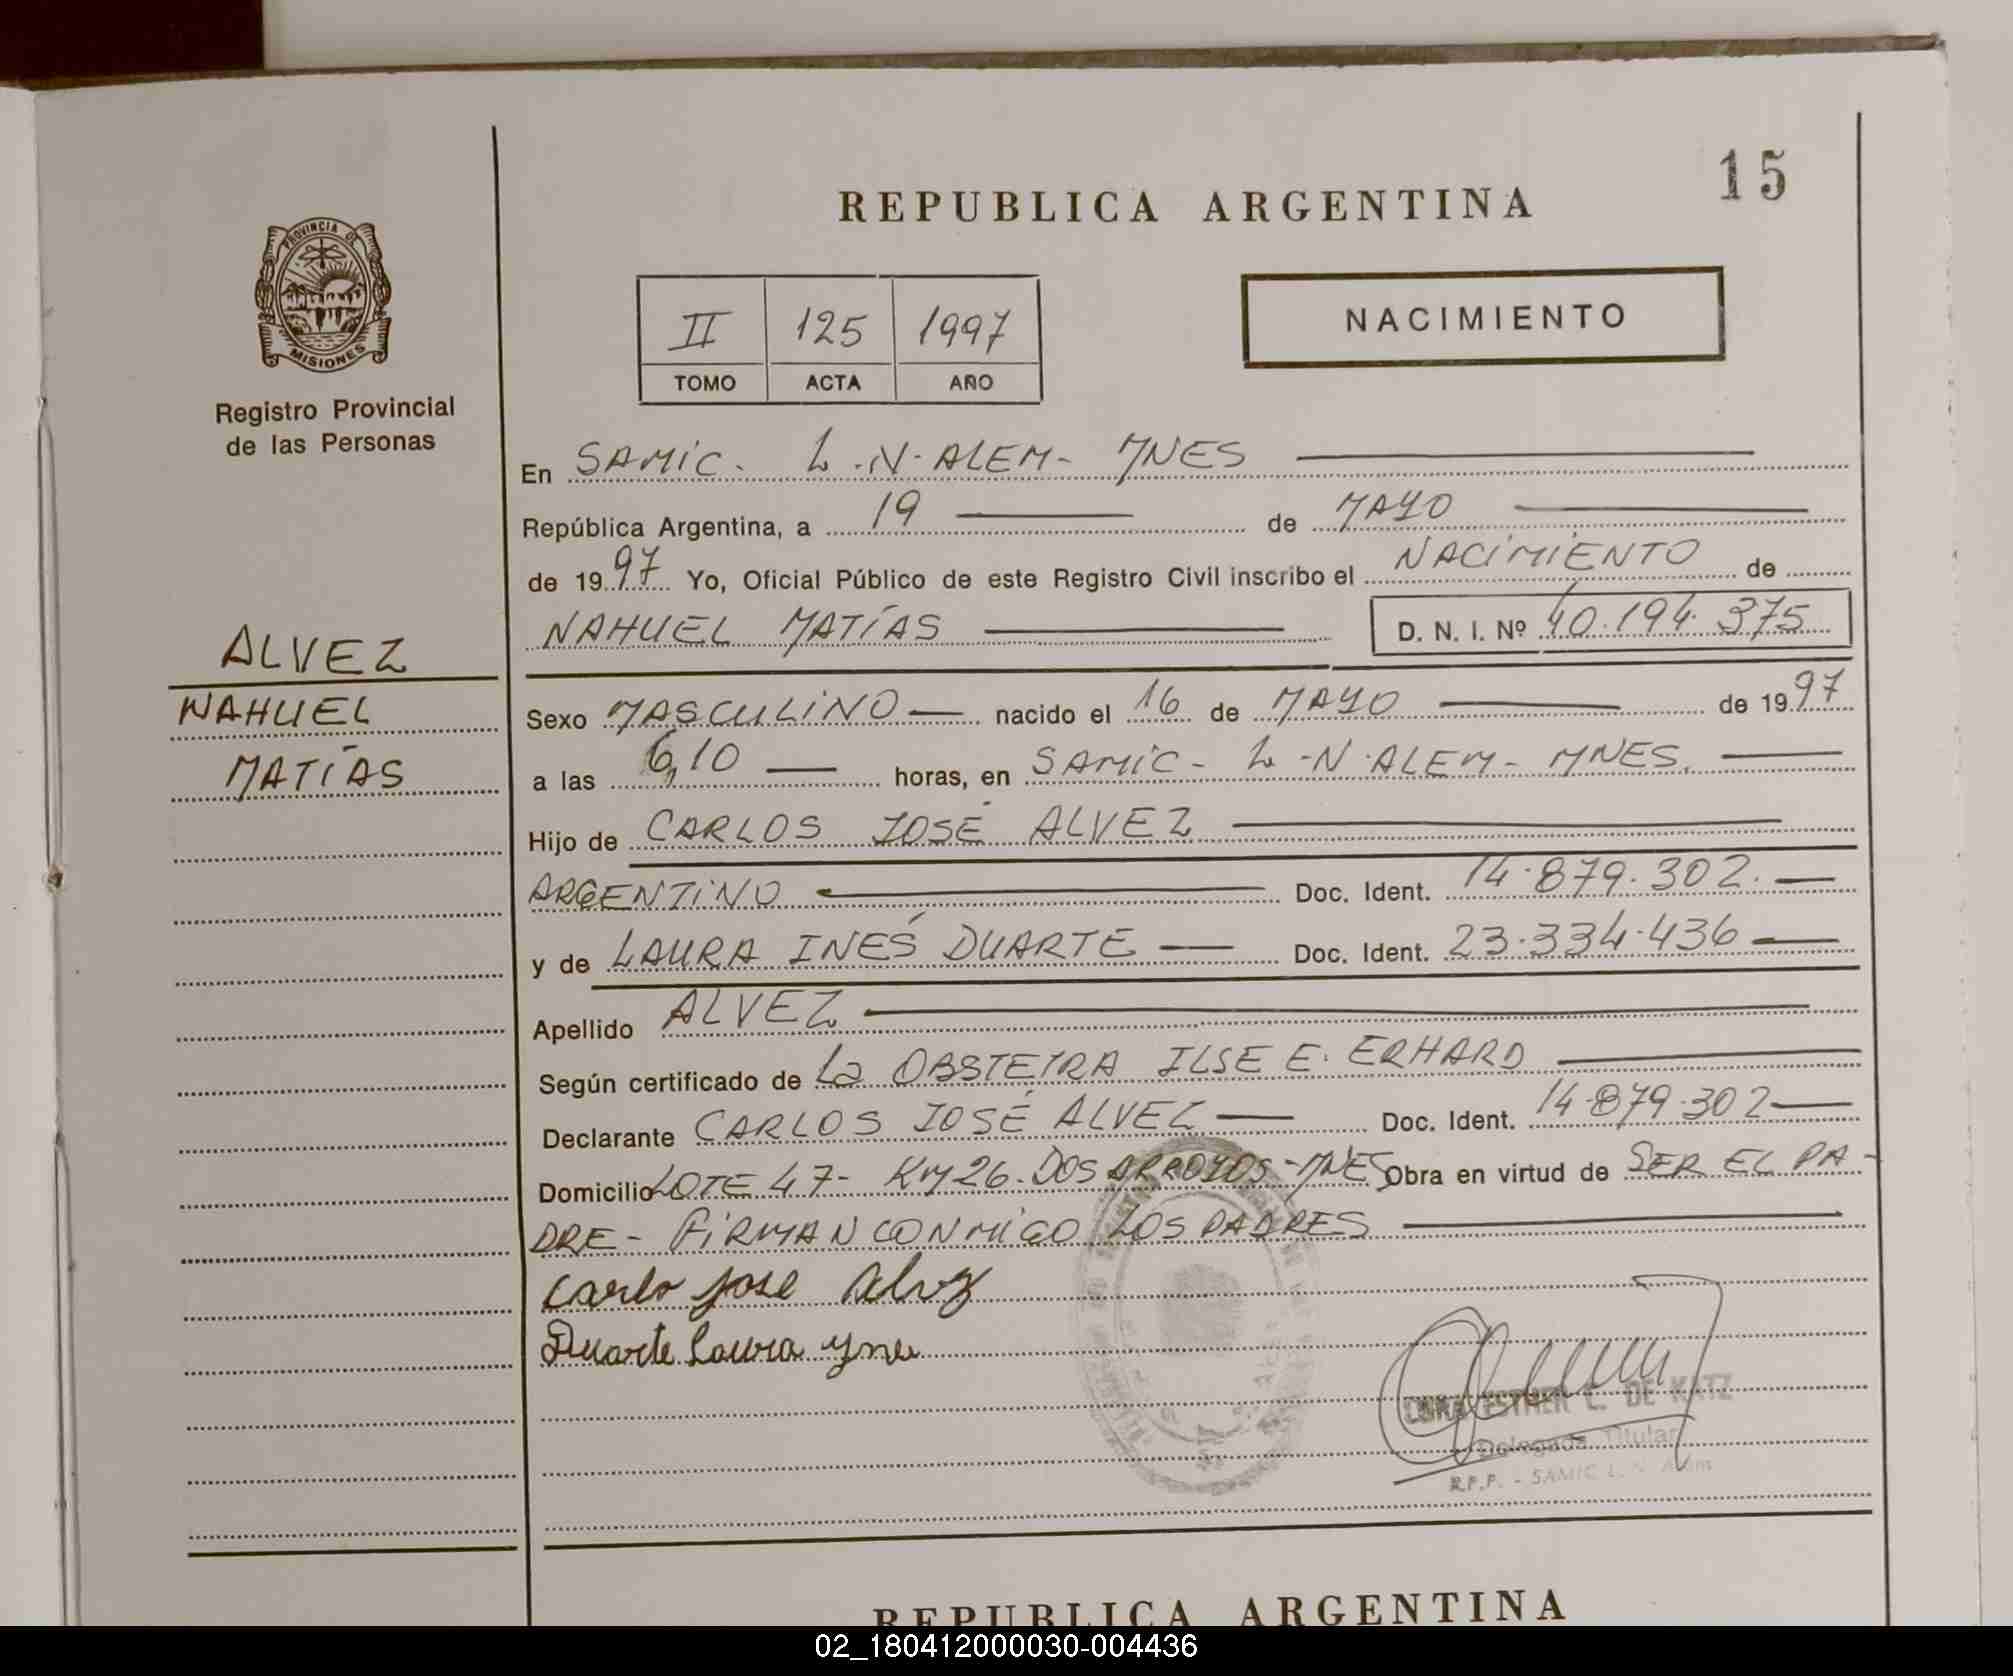 15
REPUBLICA ARGENTINA
PROVINCIA DE
MISIONES
Registro Provincial
de las Personas
II 125 1997
TOMO ACTA AÑO
NACIMIENTO
En SAMIC. L.N. ALEM- MNES
República Argentina, a 19 de MAYO
de 1997 Yo, Oficial Público de este Registro Civil inscribo el NACIMIENTO de
NAHUEL MATÍAS D. N. I. Nº 40.194.375
ALVEZ
NAHUEL
MATÍAS
Sexo MASCULINO nacido el 16 de MAYO de 1997
a las 6,10 horas, en SAMIC- L-N. ALEM- MNES.
Hijo de CARLOS JOSÉ ALVEZ
ARGENTINO Doc. Ident. 14.879.302.
y de LAURA INÉS DUARTE Doc. Ident. 23.334.436
Apellido ALVEZ
Según certificado de La OBSTETRA ILSE E. ERHARD
Declarante CARLOS JOSÉ ALVEZ Doc. Ident. 14.879.302
Domicilio LOTE 47- KM 26. DOS ARROYOS-MNES Obra en virtud de SER EL PA-
DRE- FIRMAN CONMIGO LOS PADRES
Carlo Jose Alvz
Duarte Laura Yne
ESTHER C. DE KATZ
Delegada Titular
R.P.P. - SAMIC L. N. Alem
REPUBLICA ARGENTINA
02_180412000030-004436